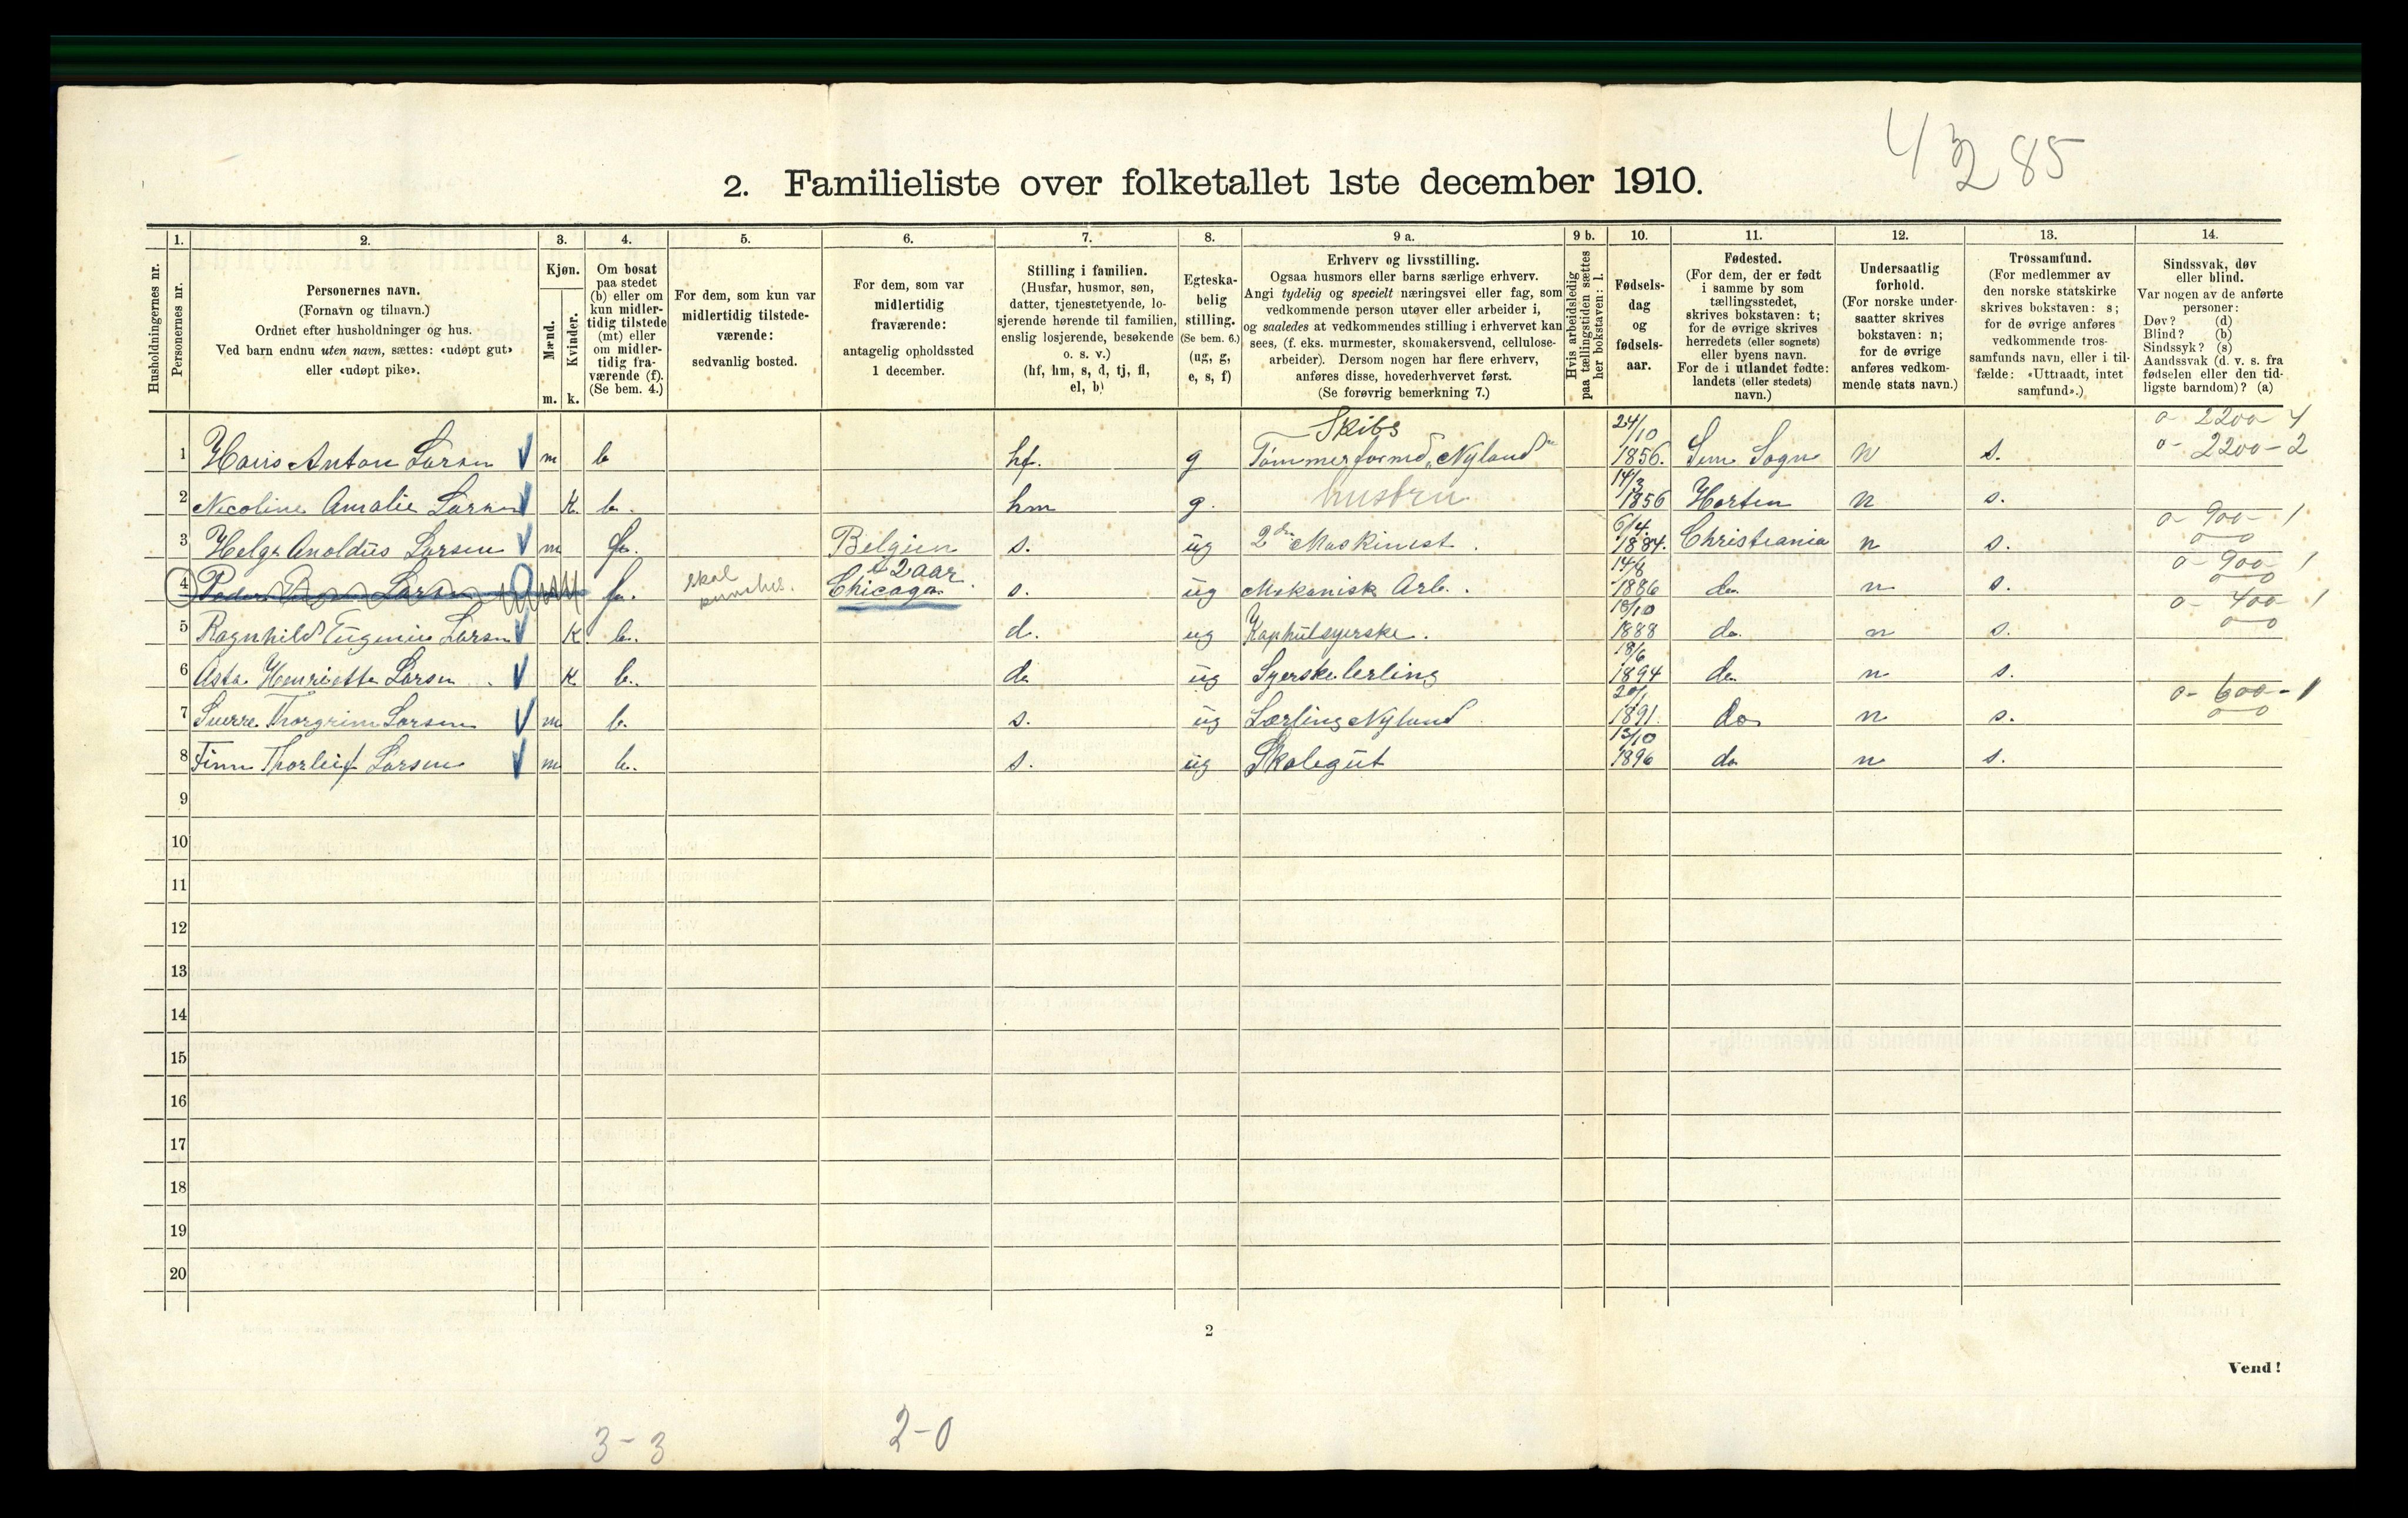 4 3 2 85
2. Familieliste over folketallet 1ste december 1910.
1. 2. 3. 4. 5. 6. 7. 8. 9 a. 9 b. 10. 11. 12. 13. 14.
Husholdningernes nr.
Personernes nr.
Personernes navn.
(Fornavn og tilnavn.)
Ordnet efter husholdninger og hus.
Ved barn endnu uten navn, sættes: «udøpt gut»
eller «udøpt pike».
Kjøn.
Mænd.
Kvinder.
m. k.
Om bosat
paa stedet
(b) eller om
kun midler-
tidig tilstede
(mt) eller
om midler-
tidig fra-
værende (f).
(Se bem. 4.)
For dem, som kun var
midlertidig tilstede-
værende:
sedvanlig bosted.
For dem, som var
midlertidig
fraværende:
antagelig opholdssted
1 december.
Stilling i familien.
(Husfar, husmor, søn,
datter, tjenestetyende, lo-
sjerende hørende til familien,
enslig losjerende, besøkende
o. s. v.)
(hf, hm, s, d, tj, fl,
el, b)
Egteska-
belig
stilling.
(Se bem. 6.)
(ug, g,
e, s, f)
Erhverv og livsstilling.
Ogsaa husmors eller barns særlige erhverv.
Angi tydelig og specielt næringsvei eller fag, som
vedkommende person utøver eller arbeider i,
og saaledes at vedkommendes stilling i erhvervet kan
sees, (f. eks. murmester, skomakersvend, cellulose-
arbeider). Dersom nogen har flere erhverv,
anføres disse, hovederhvervet først.
(Se forøvrig bemerkning 7.)
Hvis arbeidsledig
paa tællingstiden sættes
her bokstaven: l.
Fødsels-
dag
og
fødsels-
aar.
Fødested.
(For dem, der er født
i samme by som
tællingsstedet,
skrives bokstaven: t;
for de øvrige skrives
herredets (eller sognets)
eller byens navn.
For de i utlandet fødte:
landets (eller stedets)
navn.)
Undersaatlig
forhold.
(For norske under-
saatter skrives
bokstaven: n;
for de øvrige
anføres vedkom-
mende stats navn.)
Trossamfund.
(For medlemmer av
den norske statskirke
skrives bokstaven: s;
for de øvrige anføres
vedkommende tros-
samfunds navn, eller i til-
fælde: «Uttraadt, intet
samfund».)
Sindssvak, døv
eller blind.
Var nogen av de anførte
personer:
Døv? (d)
Blind? (b)
Sindssyk? (s)
Aandssvak (d. v. s. fra
fødselen eller den tid-
ligste barndom)? (a)
Skibs 24/10 o - 2200 - 4
1 Hans Anton Larsen m b hf. g Tømmerformd „Nyland" 1856. Sem Sogn n s. o - 2200 - 2
2 Nicoline Amalie Larsen k. b. hm g. hustru 14/3 1856 Horten n s.
3 Helge Anoldus Larsen m f. Belgien s. ug 2den Maskinist. 6/4. 1884. Christiania n s. o - 900 - 1 o o
4 Peder Larsen f. skal Chicago. 2 aar s. ug Mekanisk Arb. 14/8 1886 do n s. o - 900 - 1 o o
5 Ragnhild Eugenie Larsen k b. d. ug Kaphutsyerske. 18/10 1888 do. n s. o - 400 - 1 o o
6 Asta Henriette Larsen k b. d. ug Syerskelerling 18/6 1894 do n s.
7 Sverre Thorgrim Larsen m b. s. ug Lærling Nyland 20/1 1891. do n s. o - 600 - 1 o o
8 Finn Thorleif Larsen m b. s. ug Skolegut 13/10 1896 do n s.
9
10
11
12
13
14
15
16
17
18
19
20
2
Vend!
3 - 3 2 - 0